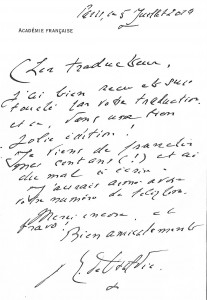 Paris, ce 5 Juillet 20
ACADÉMIE FRANÇAISE
Cher traducteur,
J'ai bien reçu et suis
touché par votre traduction
et ce, dans une bien
jolie édition !
Je viens de franchir
mes cent ans (!) et ai
du mal à écrire
J'aurais aimé avoir
votre numéro de téléphone.
Merci encore et
bravo,
Bien amicalement